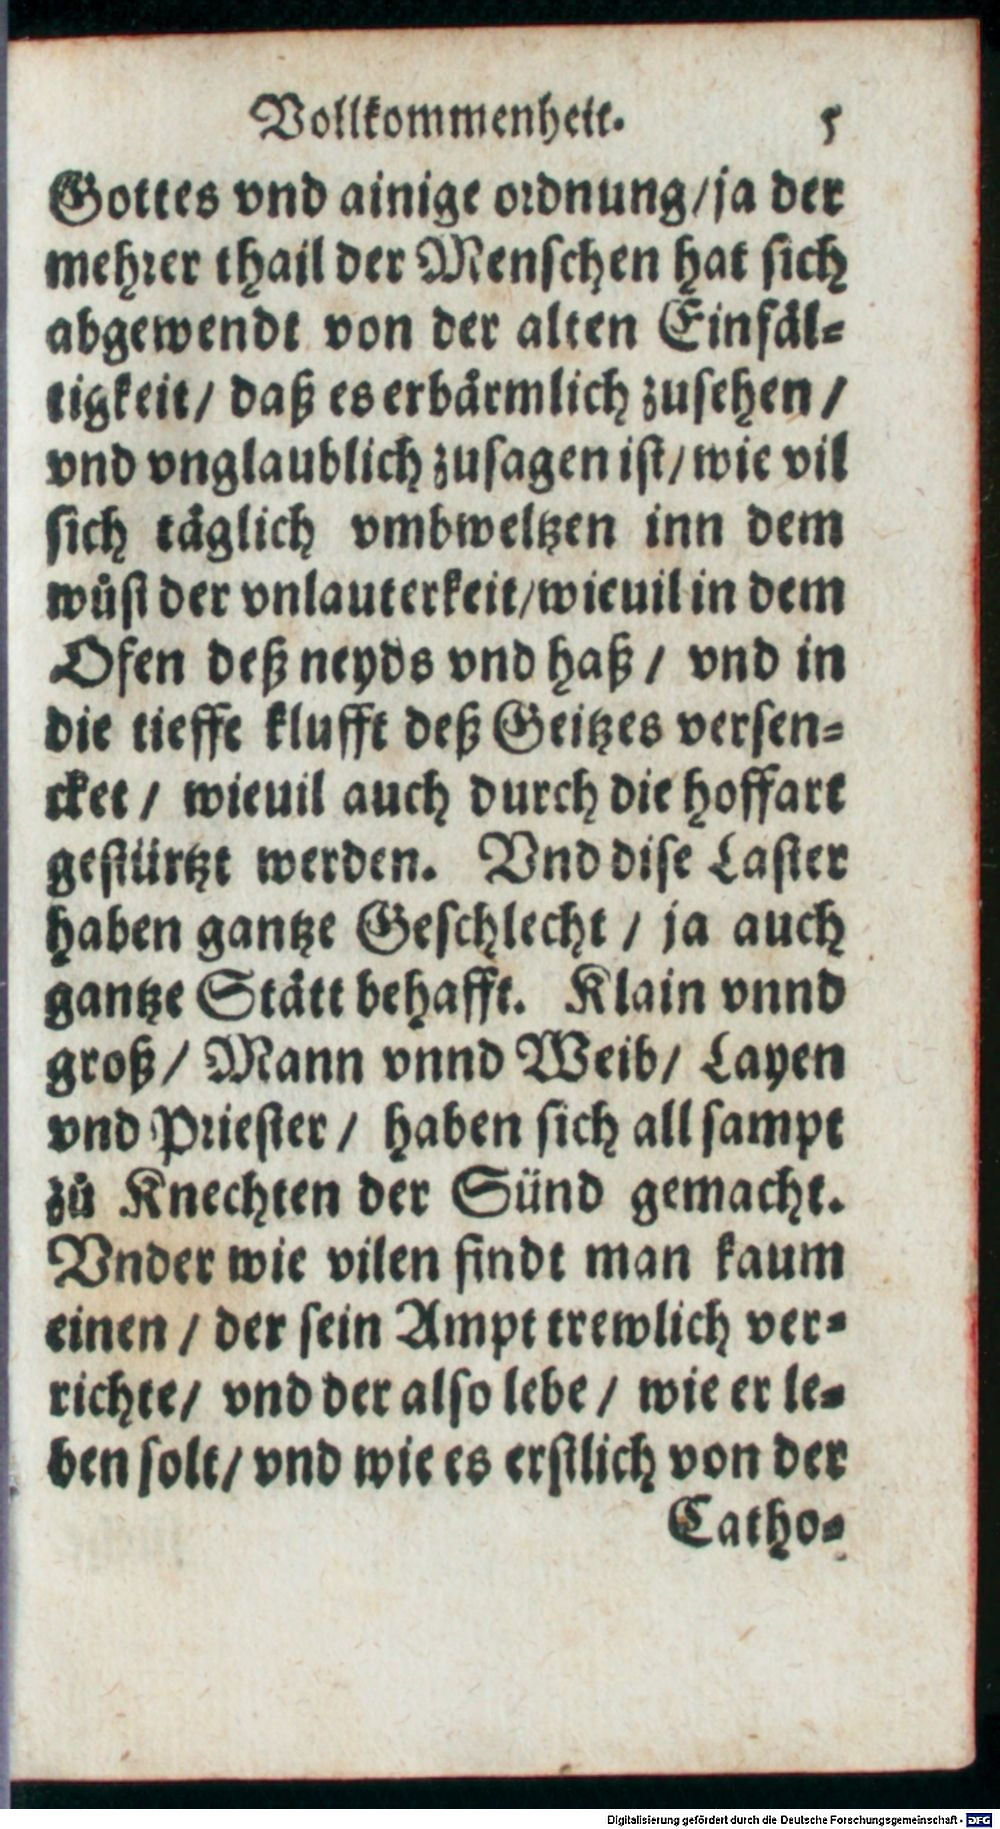 Vollkommenheit. 5
Gottes vnd ainige ordnung/ja der
mehrer thail der Menschen hat sich
abgewendt von der alten Einfäl-
tigkeit/ daß es erbärmlich zusehen/
vnd vnglaublich zusagen ist/ wie vil
sich täglich vmbweltzen inn dem
wůst der vnlauterkeit/wieuil in dem
Ofen deß neyds vnd haß/ vnd in
die tieffe klufft deß Geitzes versen-
cket/ wieuil auch durch die hoffart
gestürtzt werden. Vnd dise Laster
haben gantze Geschlecht/ ja auch
gantze Stätt behafft. Klain vnnd
groß/ Mann vnnd Weib/ Layen
vnd Priester/ haben sich all sampt
zů Knechten der Sünd gemacht.
Vnder wie vilen findt man kaum
einen/ der sein Ampt trewlich ver-
richte/ vnd der also lebe/ wie er le-
ben solt/ vnd wie es erstlich von der
Catho-
Digitalisierung gefördert durch die Deutsche Forschungsgemeinschaft - DFG